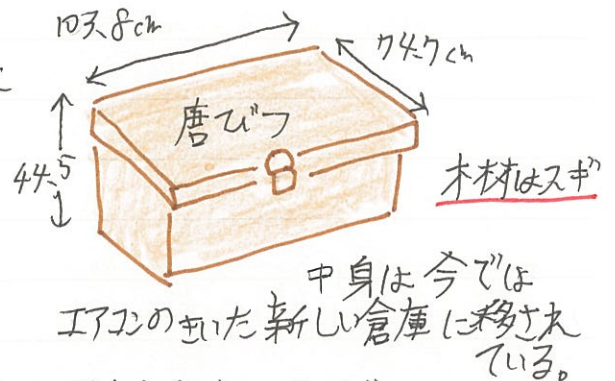 103.8cm
74.7cm
44.5
唐びつ
木材はスギ
中身は今では
エアコンのきいた新しい倉庫に移され
ている。